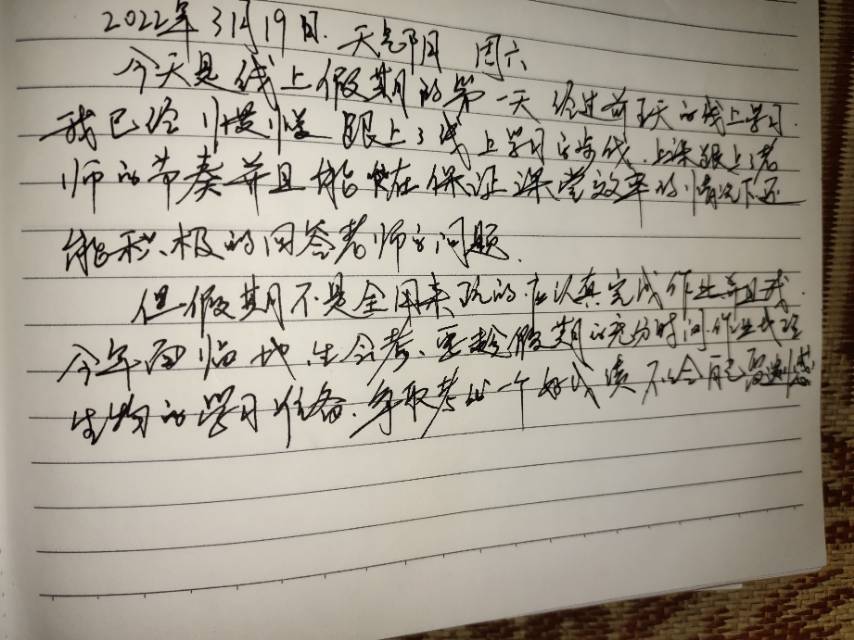 2022年3月19日. 天气阴 周六
今天是线上假期的第一天 经过前五天的线上学习.
我已经慢慢跟上了线上学习的步伐. 上课跟上了老
师的节奏并且能在保证课堂效率的情况下还
能积极的回答老师的问题.
但假期不是全用来玩的. 应认真完成作业并且我.
今年面临地、生会考、要趁假期的充分时间. 作业地理
生物的学习任务. 争取考出一个好成绩 不给自己留遗憾